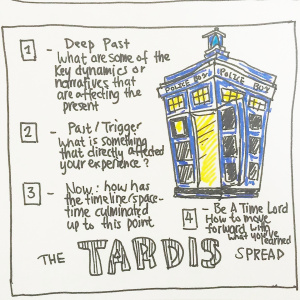 1 - Deep Past
What are some of the
key dynamics or
narratives that
are affecting the
present
POLICE BOX
POLICE BOX
2 - Past/Trigger
What is something
that directly affected
your experience?
3 - Now: how has
the timeline/space-
time culminated
up to this point
4 - Be A Time Lord
How to move
forward with
what you've
learned
THE TARDIS SPREAD